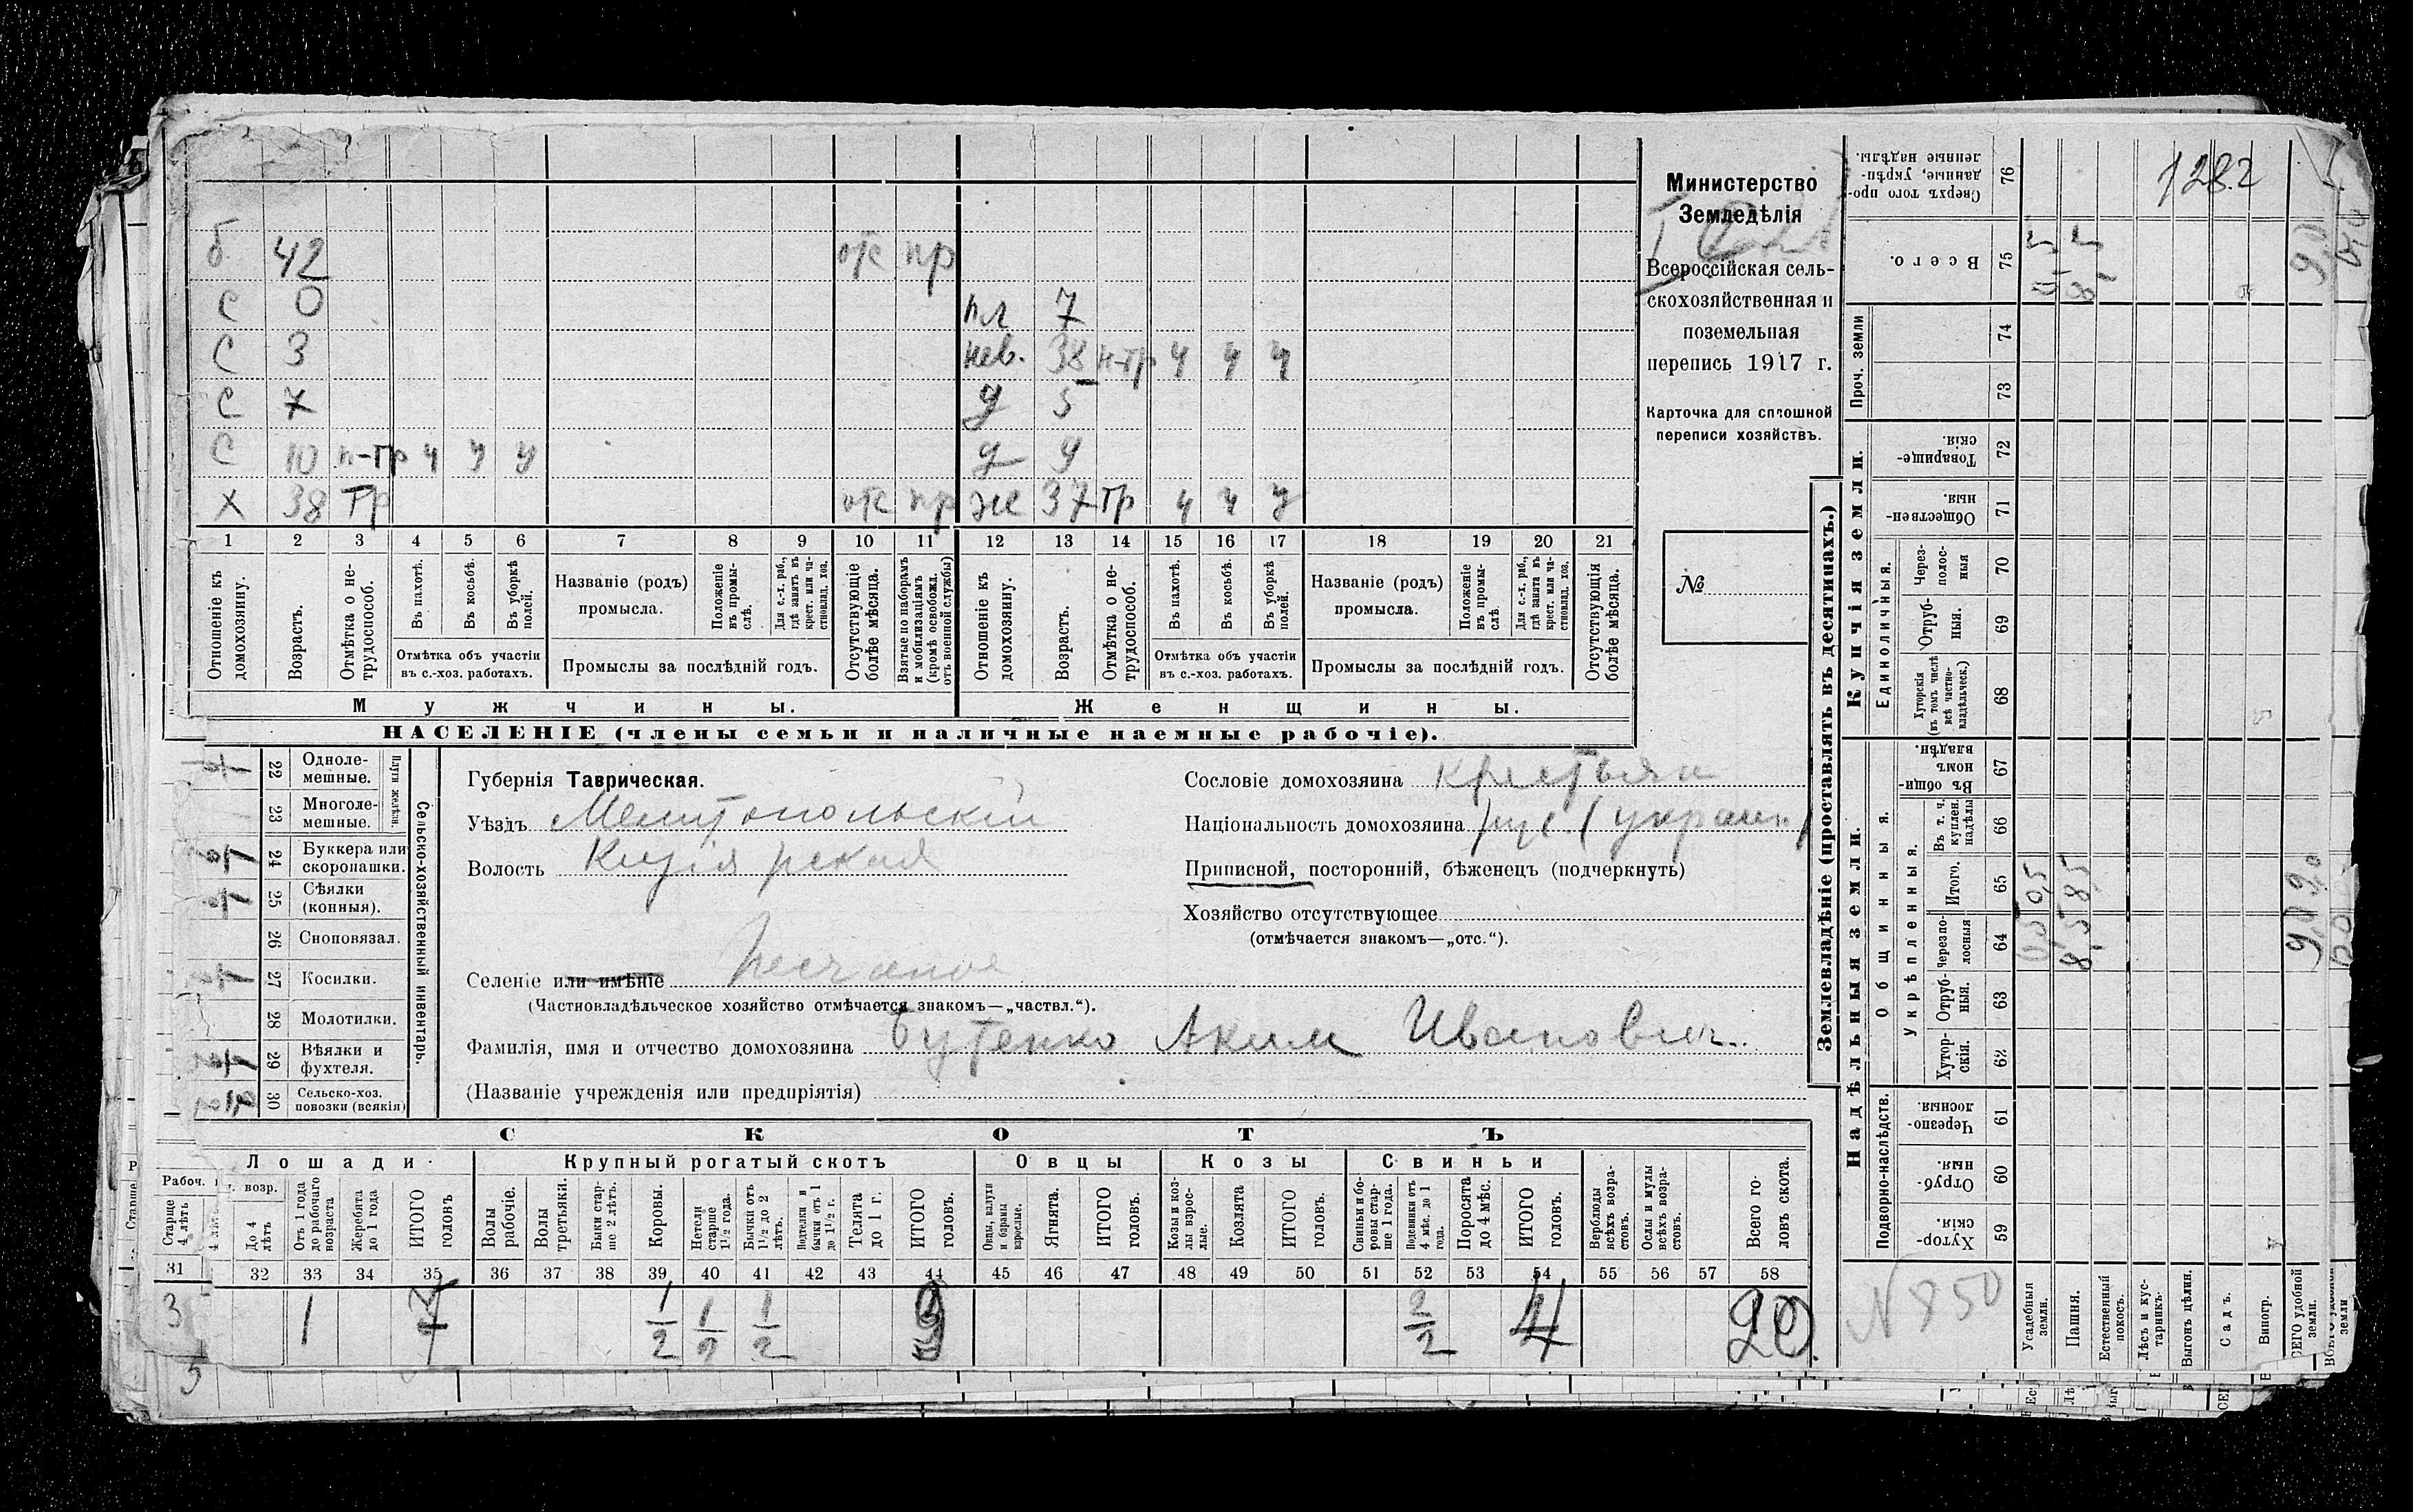 б 42 отс пр
С 0 пл 7
С 3 нев. 38 н-тр ч ч ч
С 7 д 5
С 10 п-тр ч ч у д 9
Х 38 Тр отс пр ж 37 тр ч ч у
1 2 3 4 5 6 7 8 9 10 11 12 13 14 15 16 17 18 19 20 21
Отношеніе къ домохозяину.
Возрастъ.
Отмѣтка о не-трудоспособ.
Въ пахотѣ.
Въ косьбѣ.
Въ уборкѣ полей.
Отмѣтка объ участіи
въ с.-хоз. работахъ.
Названіе (родъ)
промысла.
Положеніе въ промы-слѣ.
Для с.-х. раб., гдѣ занятъ въ крест. или ча-стновлад. хоз.
Промыслы за послѣдній годъ.
Отсутствующіе болѣе мѣсяца.
Взятые по наборамъ и мобилизаціямъ (кромѣ освобожд. отъ военной службы)
Отношеніе къ домохозяину.
Возрастъ.
Отмѣтка о не-трудоспособ.
Въ пахотѣ.
Въ косьбѣ.
Въ уборкѣ полей.
Отмѣтка объ участіи
въ с.-хоз. работахъ.
Названіе (родъ)
промысла.
Положеніе въ промы-слѣ.
Для с.-х. раб., гдѣ занятъ въ крест. или ча-стновлад. хоз.
Промыслы за послѣдній годъ.
Отсутствующія болѣе мѣсяца.
Мужчины. Женщины.
НАСЕЛЕНІЕ (члены семьи и наличные наемные рабочіе).
Министерство
Земледѣлія
Всероссійская сель-
скохозяйственная и
поземельная
перепись 1917 г.
Карточка для сплошной
переписи хозяйствъ.
№
22 Одноле-
мешные.
23 Многоле-
мешные.
Плуги желѣзн.
24 Буккера или
скоропашки.
25 Сѣялки
(конныя).
26 Сноповязал.
27 Косилки.
28 Молотилки.
29 Вѣялки и
фухтеля.
30 Сельско-хоз.
повозки (всякія)
Сельско-хозяйственный инвентарь.
Губернія Таврическая.
Уѣздъ Мелитопольскій
Волость
Селеніе или имѣніе Песчаное
(Частновладѣльческое хозяйство отмѣчается знакомъ—„частвл.“).
Фамилія, имя и отчество домохозяина Бутенко Аким Иванович.
(Названіе учрежденія или предпріятія)
Сословіе домохозяина крестьян
Національность домохозяина рус. (украин)
Приписной, посторонній, бѣженецъ (подчеркнуть)
Хозяйство отсутствующее
(отмѣчается знакомъ—„отс.“).
СКОТЪ
Лошади. Крупный рогатый скотъ Овцы Козы Свиньи
Рабоч.
возр.
Старше 4 лѣтъ
До 4 лѣтъ
Отъ 1 года до рабочаго возраста
Жеребята до 1 года
ИТОГО головъ
Волы рабочіе.
Волы третьяки.
Быки стар-ше 2 лѣтъ.
Коровы.
Нетели старше 1½ года.
Бычки отъ 1½ до 2 лѣтъ.
Подтелки и бычки отъ 1 до 1½ г.
Телята до 1 г.
ИТОГО головъ.
Овцы, валухи и бараны взрослые.
Ягнята.
ИТОГО головъ.
Козы и коз-лы взрос-лые.
Козлята
ИТОГО головъ.
Свиньи и бо-ровы стар-ше 1 года.
Подсвинки отъ 4 мѣс. до 1 года.
Поросята до 4 мѣс.
ИТОГО головъ.
Верблюды всѣхъ возра-стовъ.
Ослы и мулы всѣхъ возра-стовъ.
Всего го-ловъ скота.
31 32 33 34 35 36 37 38 39 40 41 42 43 44 45 46 47 48 49 50 51 52 53 54 55 56 57 58
3 1 7 1/2 1/2 1/2 9 2/2 4 20.
5
Землевладѣніе (проставлять въ десятинахъ.)
Надѣльныя земли. Купчія земли. Проч. земли
Подворно-наслѣдств. Общинныя. Единоличныя.
Укрѣпленныя.
Сверхъ того про-данные, укрѣп-ленные надѣлы. 76
Всего. 75
74
73
Товарище-скія. 72
Обществен-ныя. 71
Через-полос-ныя 70
Отруб-ныя. 69
Хуторскія (въ томъ числѣ всѣ частно-владѣльческ.) 68
Въ общин-номъ владѣн. 67
Въ т. ч. куплен. надѣлы 66
Итого. 65
Черезпо-лосныя 64
Отруб-ныя. 63
Хутор-скія. 62
Черезпо-лосныя. 61
Отруб-ныя. 60
Хутор-скія. 59
1282
N 850
Усадебныя земли.
Пашня.
Естественный покосъ.
Лѣсъ и кус-тарникъ.
Выгонъ цѣлин.
Садъ.
Виногр.
СЕГО удобной земли.